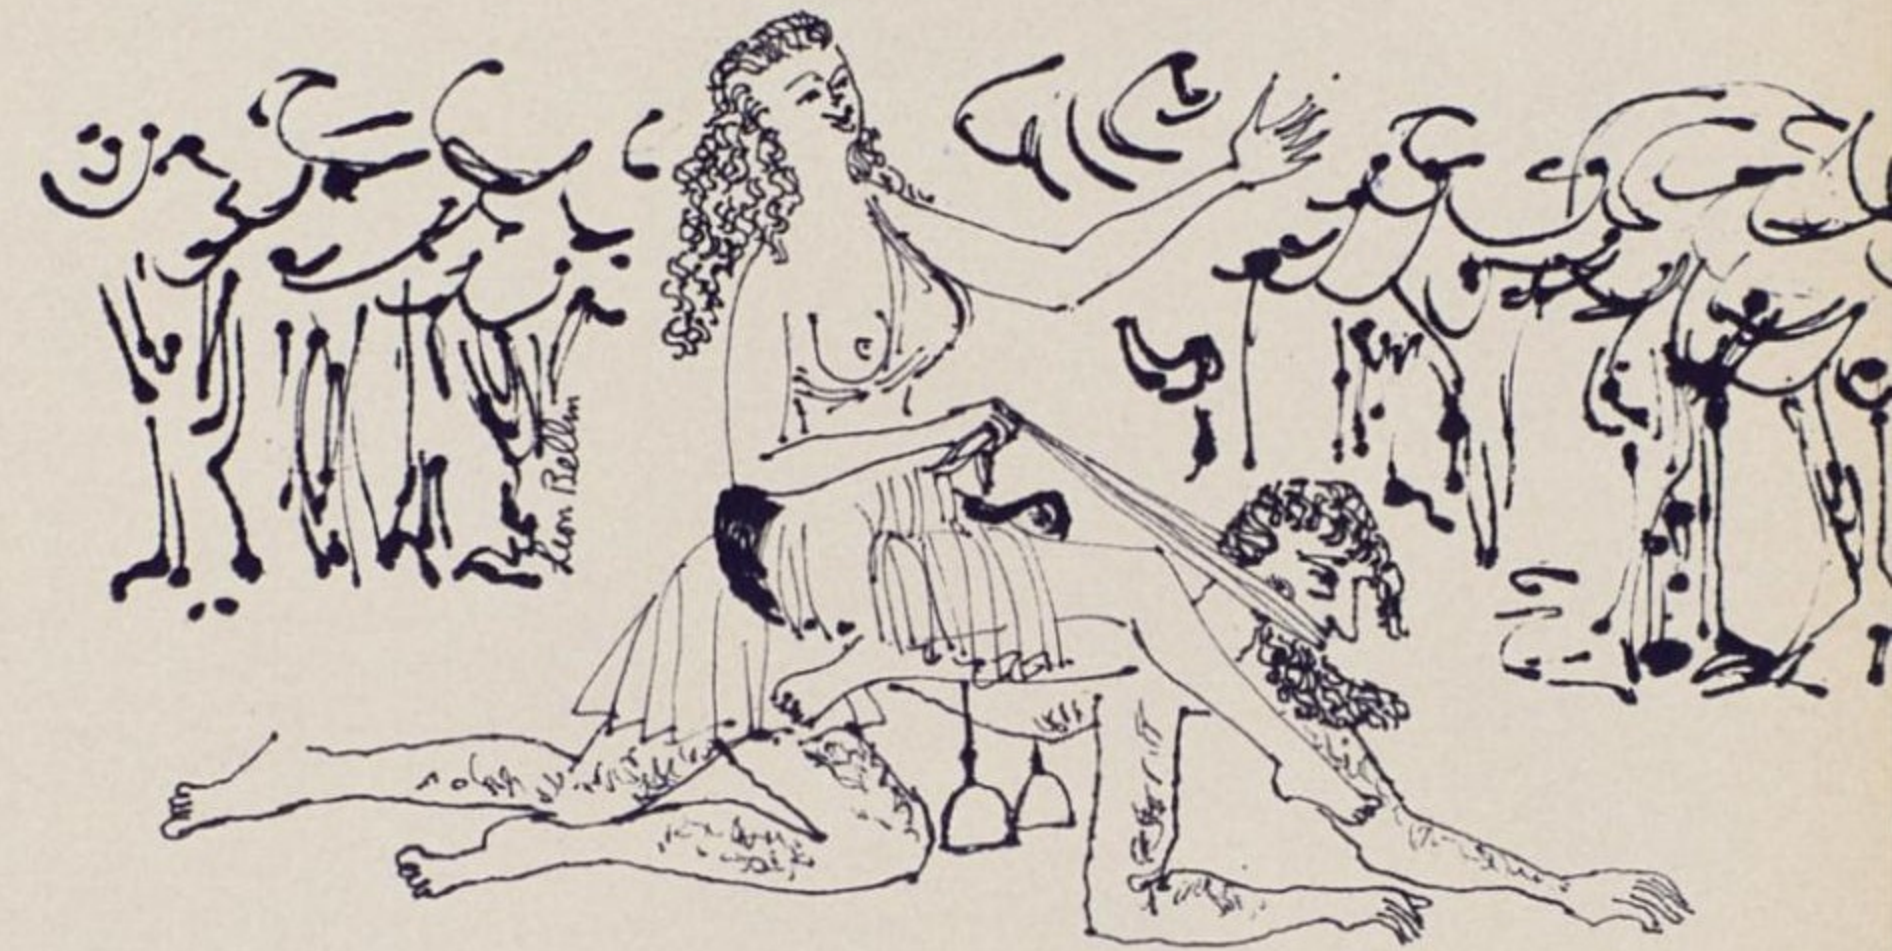 Leon Bellin